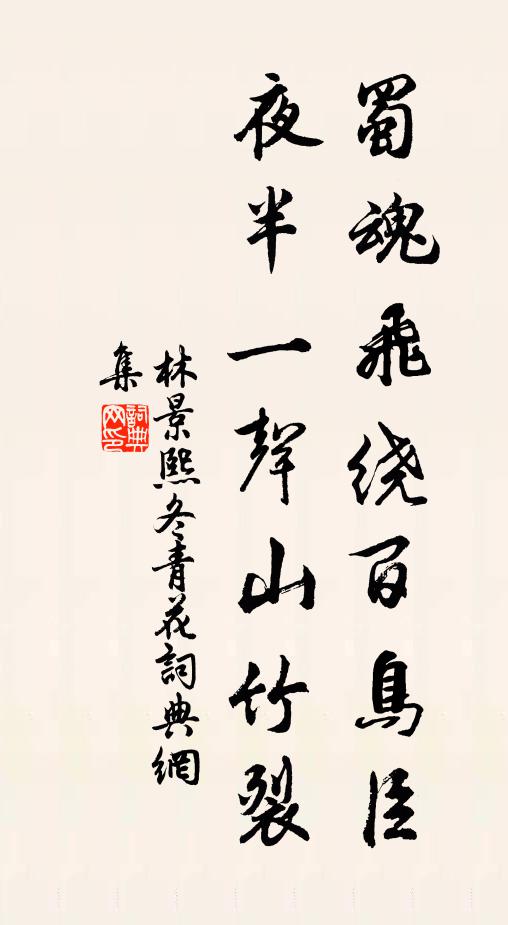 蜀魂飛绕百鳥臣
夜半一聲山竹裂
林景熙冬青花詞典網
集
詞典網印